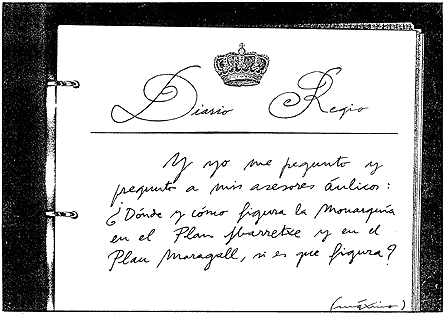 Diario Regio
Y yo me pregunto y
pregunto a mis asesores áulicos:
¿Dónde y cómo figura la Monarquía
en el Plan Ibarretxe y en el
Plan Maragall, si es que figura?
(máximo)